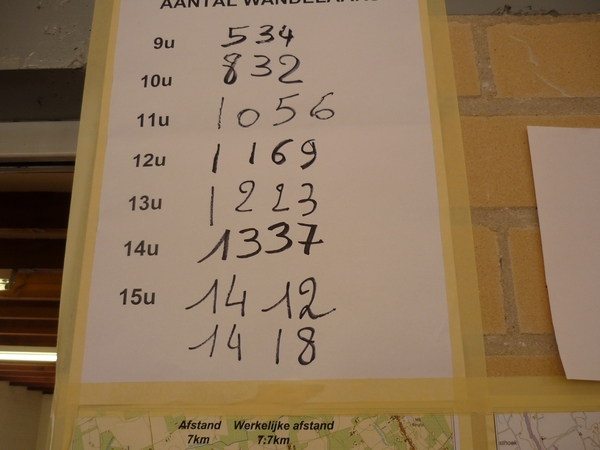 AANTAL WANDELAARS
9u 534
10u 832
11u 1056
12u 1169
13u 1223
14u 1337
15u 1412
1418
Afstand Werkelijke afstand
7km 7.7km